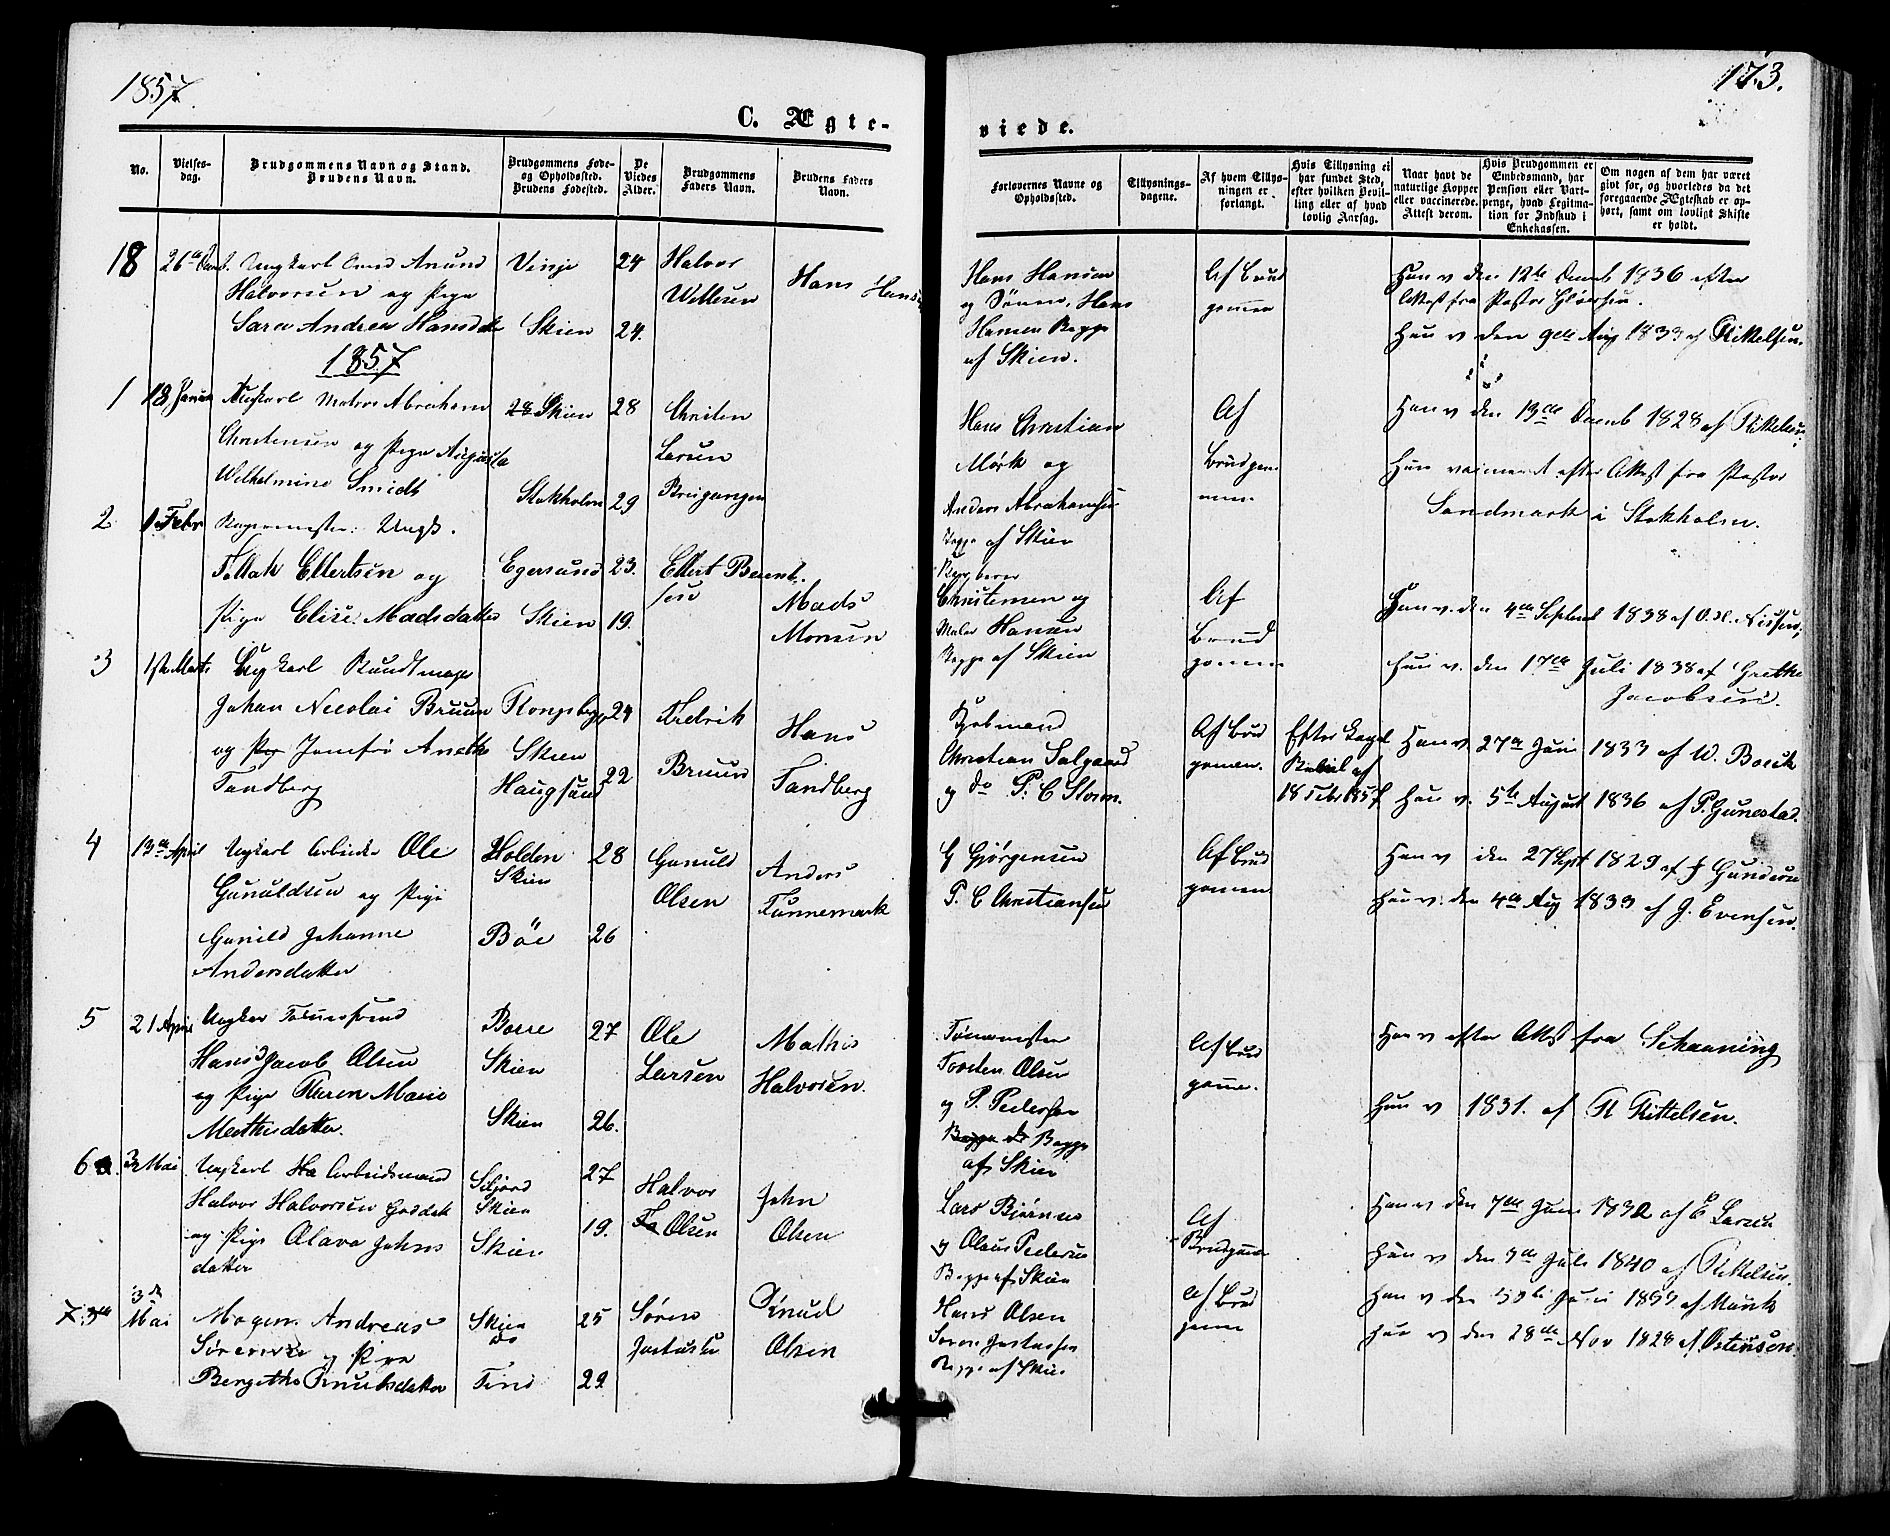 1857.
173.
C. Ægte-
viede.
No.
Vielses-
dag.
Brudgommens Navn og Stand.
Brudens Navn.
Brudgommens Føde-
og Opholdssted.
Brudens Fødested.
De
Viedes
Alder.
Brudgommens
Faders Navn.
Brudens Faders
Navn.
Forlovernes Navne og
Opholdssted.
Tillysnings-
dagene.
Af hvem Tillys-
ningen er
forlangt.
Hvis Tillysning ei
har fundet Sted,
efter hvilken Bevil-
ling eller af hvad
lovlig Aarsag.
Naar havt de
naturlige Kopper
eller vaccinerede.
Attest derom.
Hvis Brudgommen er
Embedsmand, har
Pension eller Vart-
penge, hvad Legitima-
tion for Indskud i
Enkekassen.
Om nogen af dem har været
givt før, og hvorledes da det
foregaaende Ægteskab er op-
hørt, samt om lovligt Skifte
er holdt.
18
Ungkarl Anund
Halvorsen og Pige
Sara Andrea Hansdtr
Vinje
Skien
24
24.
Halvor
Hans Hansen
Hans Hansen
og Sønnen, Hans
Hansen Begge
af Skien.
Af Brud
gomen
Han v den 12te Decemb 1836 efter
Attest fra Pastor
Hun v den 9de Aug 1833 af Kittelsen.
1857
1
18 Januar
Ungkarl Matros Abraham
Christensen og Pige Augusta
Wilhelmine Smidt
28 Skien
Stokholm
28
29
Christen
Larsen
Hans Christian
Mørk og
Anders Abrahamsen
Begge af Skien
Af
Brudgom
men
Han v den 13de Decemb 1828 af Kittelsen;
Hun vaccineret efter Attest fra Pastor
Sandmark i Stokholm.
2
1 Febr
Bagermester: Ungk.
Ellertsen og
Pige Elise Madsdatter
Egersund
Skien
23.
19.
Ellert Berent-
sen
Mads
Monsen
Christensen og
Maler Hansen
Begge af Skien
Af
Brud
gomen
Han v. den 4de Septemb 1838 af
Hun v. den 17de Juli 1838 af Grethe
Jacobsen.
3
1ste Marts
Ungkarl Bundtmager
Johan Nicolai Bruun
og Pige Jomfru Anethe
Tandberg
Kongsberg
Skien
Haugsund
24
22
Fredrik
Bruun
Hans
Tandberg
Kjøbmand
Christian Salgaard
og do P. C Storm.
Af Brud
gomen.
Efter Kongl
af
18 Febr 1857
Han v. 27de Juni 1833 af W. Boeck
Hun v. 5te August 1836 af P. Gunestad.
4
13de April
Ungkarl Arbeider Ole
Gunuldsen og Pige
Gunild Johanne
Andersdatter
Holden
Skien
Bøe
28
26
Gunuld
Olsen
Anders
Funnemark
G Gjørgensen
P. C Christiansen
Af Brud
gomen
Han v den 27 Sept 1829 af J Gundersen
Hun v. den 4de Aug 1833 af J. Evensen.
5
21 April
Ungkar
Hans Jacob Olsen
og Pige Karen Marie
Mathisdatter.
Borre
Skien
Skien
27
26.
Ole
Larsen
Mathis
Halvorsen.
Tømermester
Torsten Olsen
og P. Pedersen
Begge do Begge
af Skien
Af Brud
gomme.
Han v efter Attest fra Schaaning
Hun v 1831. af K Kittelsen.
6
3 Mai
Ungkarl Ha Arbeidsmand
Halvor Halvorsen
og Pige Olava Johns
datter
Siljord
Skien
Skien
27
19.
Halvor
Olsen
John
Olsen
Lars Bjørnsen
og Olaus Pedersen
Begge af Skien
Af
Brudgomen
Han v den 7de Juni 1832 af E Larsen
Hun v den 3de Juli 1840 af Kittelsen.
7.
3de
Mai
Andreas
Sørensen og Pige
Bergitha Knudsdatter
Skien
do
Tind
25
29.
Søren
Knud
Olsen
Hans Olsen
Begge af Skien
Af Brud
gomen
Han v den Juni af Munk
Hun v den 28de Nov 1828 af Østensen.